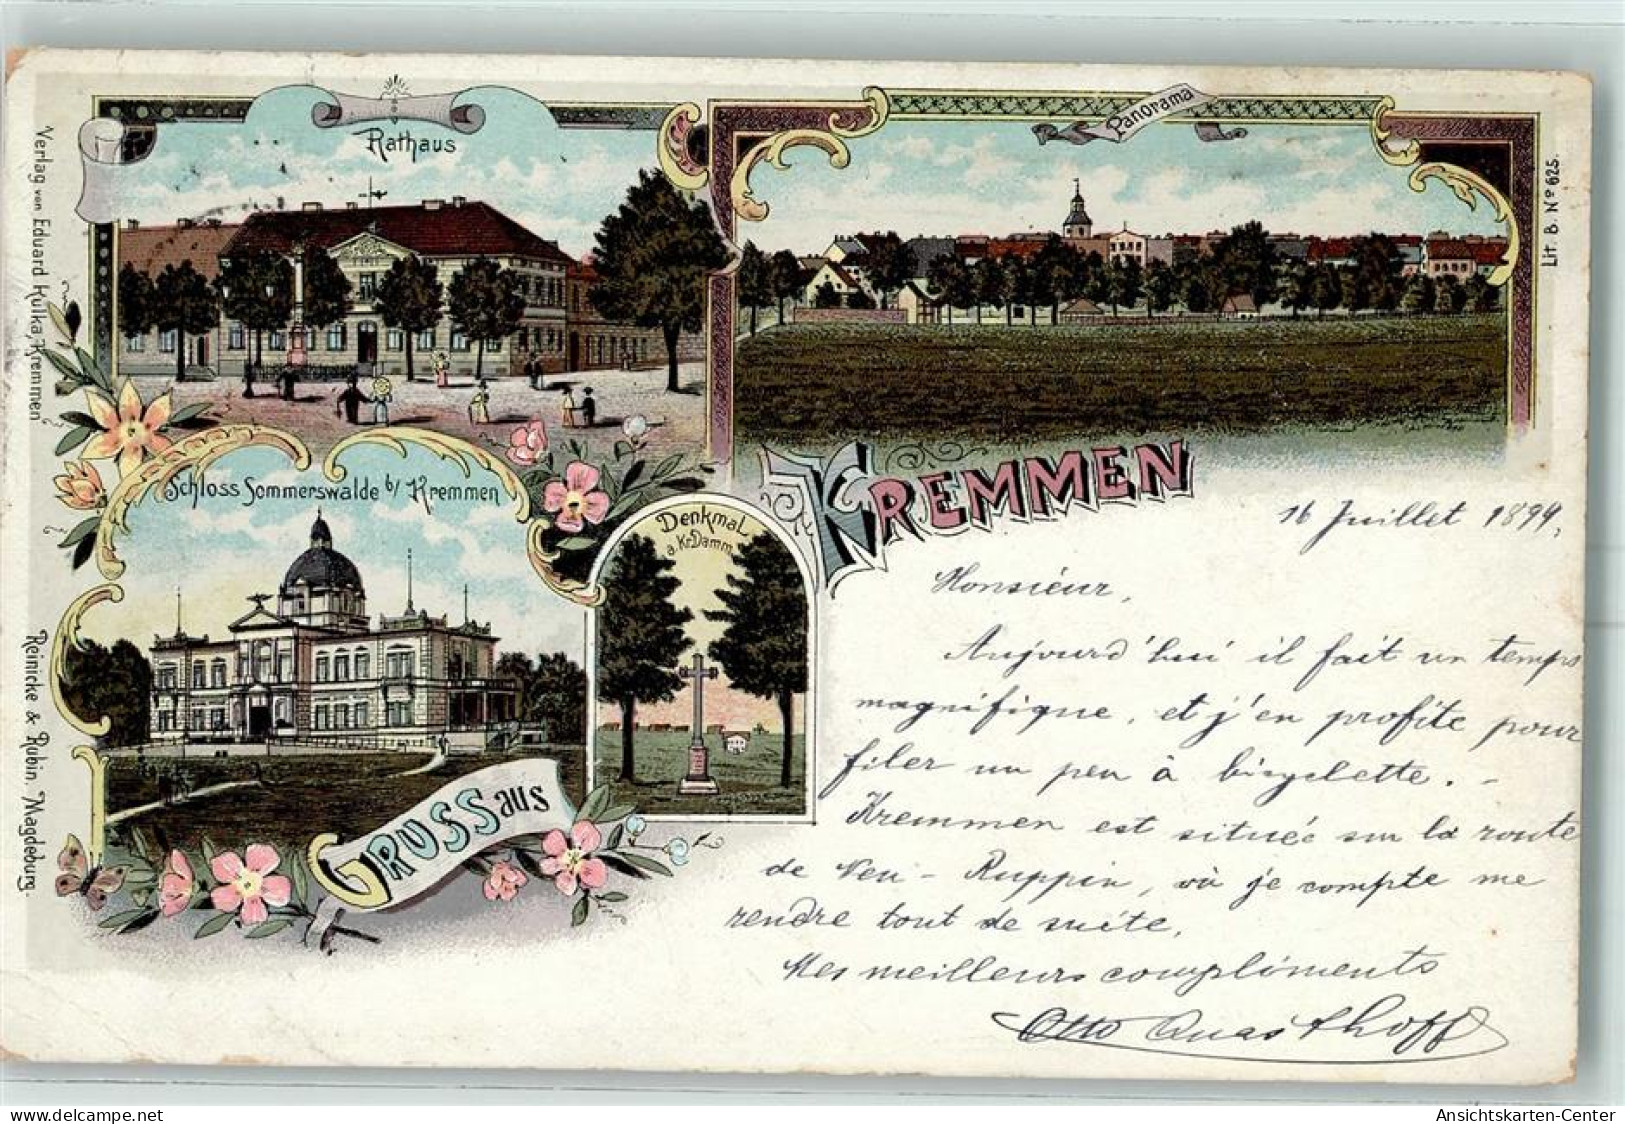 Rathaus
Panorama
Lit. B. Nº 625.
Verlag von Eduard Kulka, Kremmen
Reinicke & Rubin, Magdeburg.
Schloss Sommerswalde b/ Kremmen
Denkmal
a. Kr. Damm
GRUSS aus
KREMMEN
16 Juillet 1899,
Monsieur,
Aujourd'hui il fait un temps
magnifique, et j'en profite pour
filer un peu à bicyclette. –
Kremmen est située sur la route
de Neu-Ruppin, où je compte me
rendre tout de suite.
Mes meilleurs compliments
Otto Quasthoff
Ansichtskarten-Center